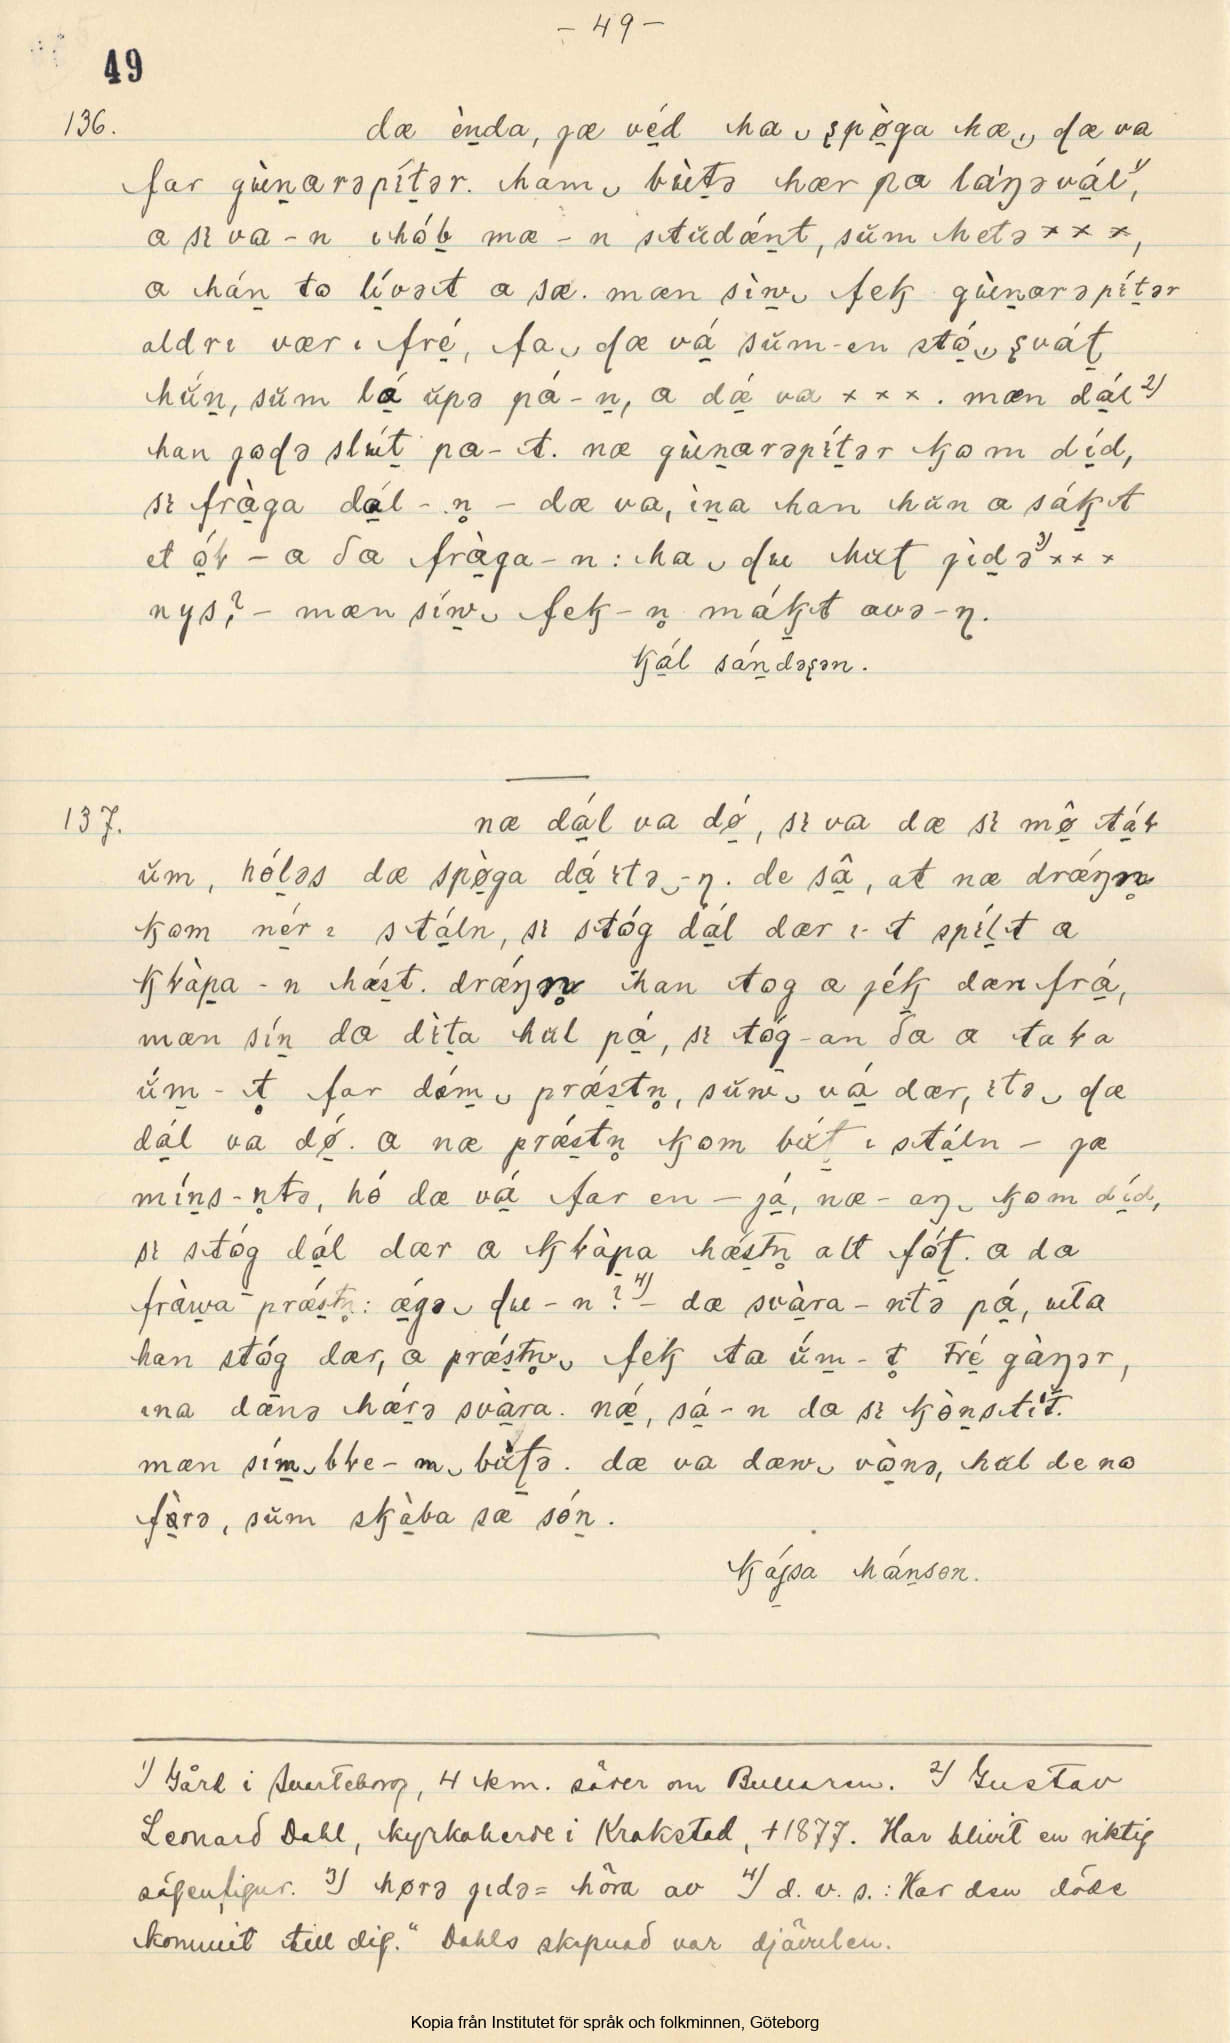 – 49 –
49
136. dæ ènda, jæ véd ha spø̀ga hæ, dæ va
far gùnarəpítər. ham bùtə hær pa láŋəvál¹⁾,
a sı va-n ıhób mæ-n stŭdǽnt, sŭm hetə × × ×,
a hán to lívət a sæ. mæn sìn fek gùnarəpítər
aldrı vær ı fré, fa dæ vá sŭm-en stó, sváʈ
hŭ́n, sŭm lá ŭpə pá-n, a dǽ va × × ×. mæn dál ²⁾
han jodə slút pa-t. næ gùnarəpítər kom díd,
sı fràga dál-n̥ – dæ va, ìna han hŭn a sákt
et ór – a da fràga-n: ha du huʈ jìdə ³⁾ × × ×
nys? – mæn sín fek-n̥ mákt avə-ŋ.
kál sándəsən.
137. næ dál va dǿ, sı va dæ sı mø̂ tár
ŭm, hóləs dæ spø̀ga dá ıtə-ŋ. de sâ, at næ drǽŋn̥
kom nér ı stáln, sı stóg dál dær ı-t spílt a
kràpa-n hǽst. drǽŋn̥ han tog a jék dæn frá,
mæn sín da dìta hul pá, sı tóg-an da a tara
ŭ́m-t̥ far dém prǽstn̥, sŭm vá dær, ıtə dæ
dál va dǿ. a næ prǽstn̥ kom búʈ ı stáln – jæ
míns-n̥tə, hó dæ vá far en – já, næ-aŋ kom díd,
sı stóg dál dær a kràpa hǽstn̥ alt fóʈ. a da
fràwa prǽstn̥: ǽgə du-n? ⁴⁾ – dæ svàra-ntə pá, uta
han stóg dær, a prǽstn̥ fek ta ŭ́m-t̥ tré gàŋər,
ına dænə hǽrə svàra. nǽ, sá-n da sı kònstit.
mæn sím bre-m bùʈə. dæ va dæm vònə, hul de no
fàrə, sŭm skàba sæ són.
kájsa hánsən.
¹⁾ Gård i Svarteborg, 4 km. söder om Bullaren. ²⁾ Gustav
Leonard Dahl, kyrkoherde i Krokstad, +1877. Har blivit en riktig
sägenfigur. ³⁾ hørə jıdə = höra av ⁴⁾ d. v. s.: Har den döde
kommit till dig." Dahls skepnad var djävulen.
Kopia från Institutet för språk och folkminnen, Göteborg